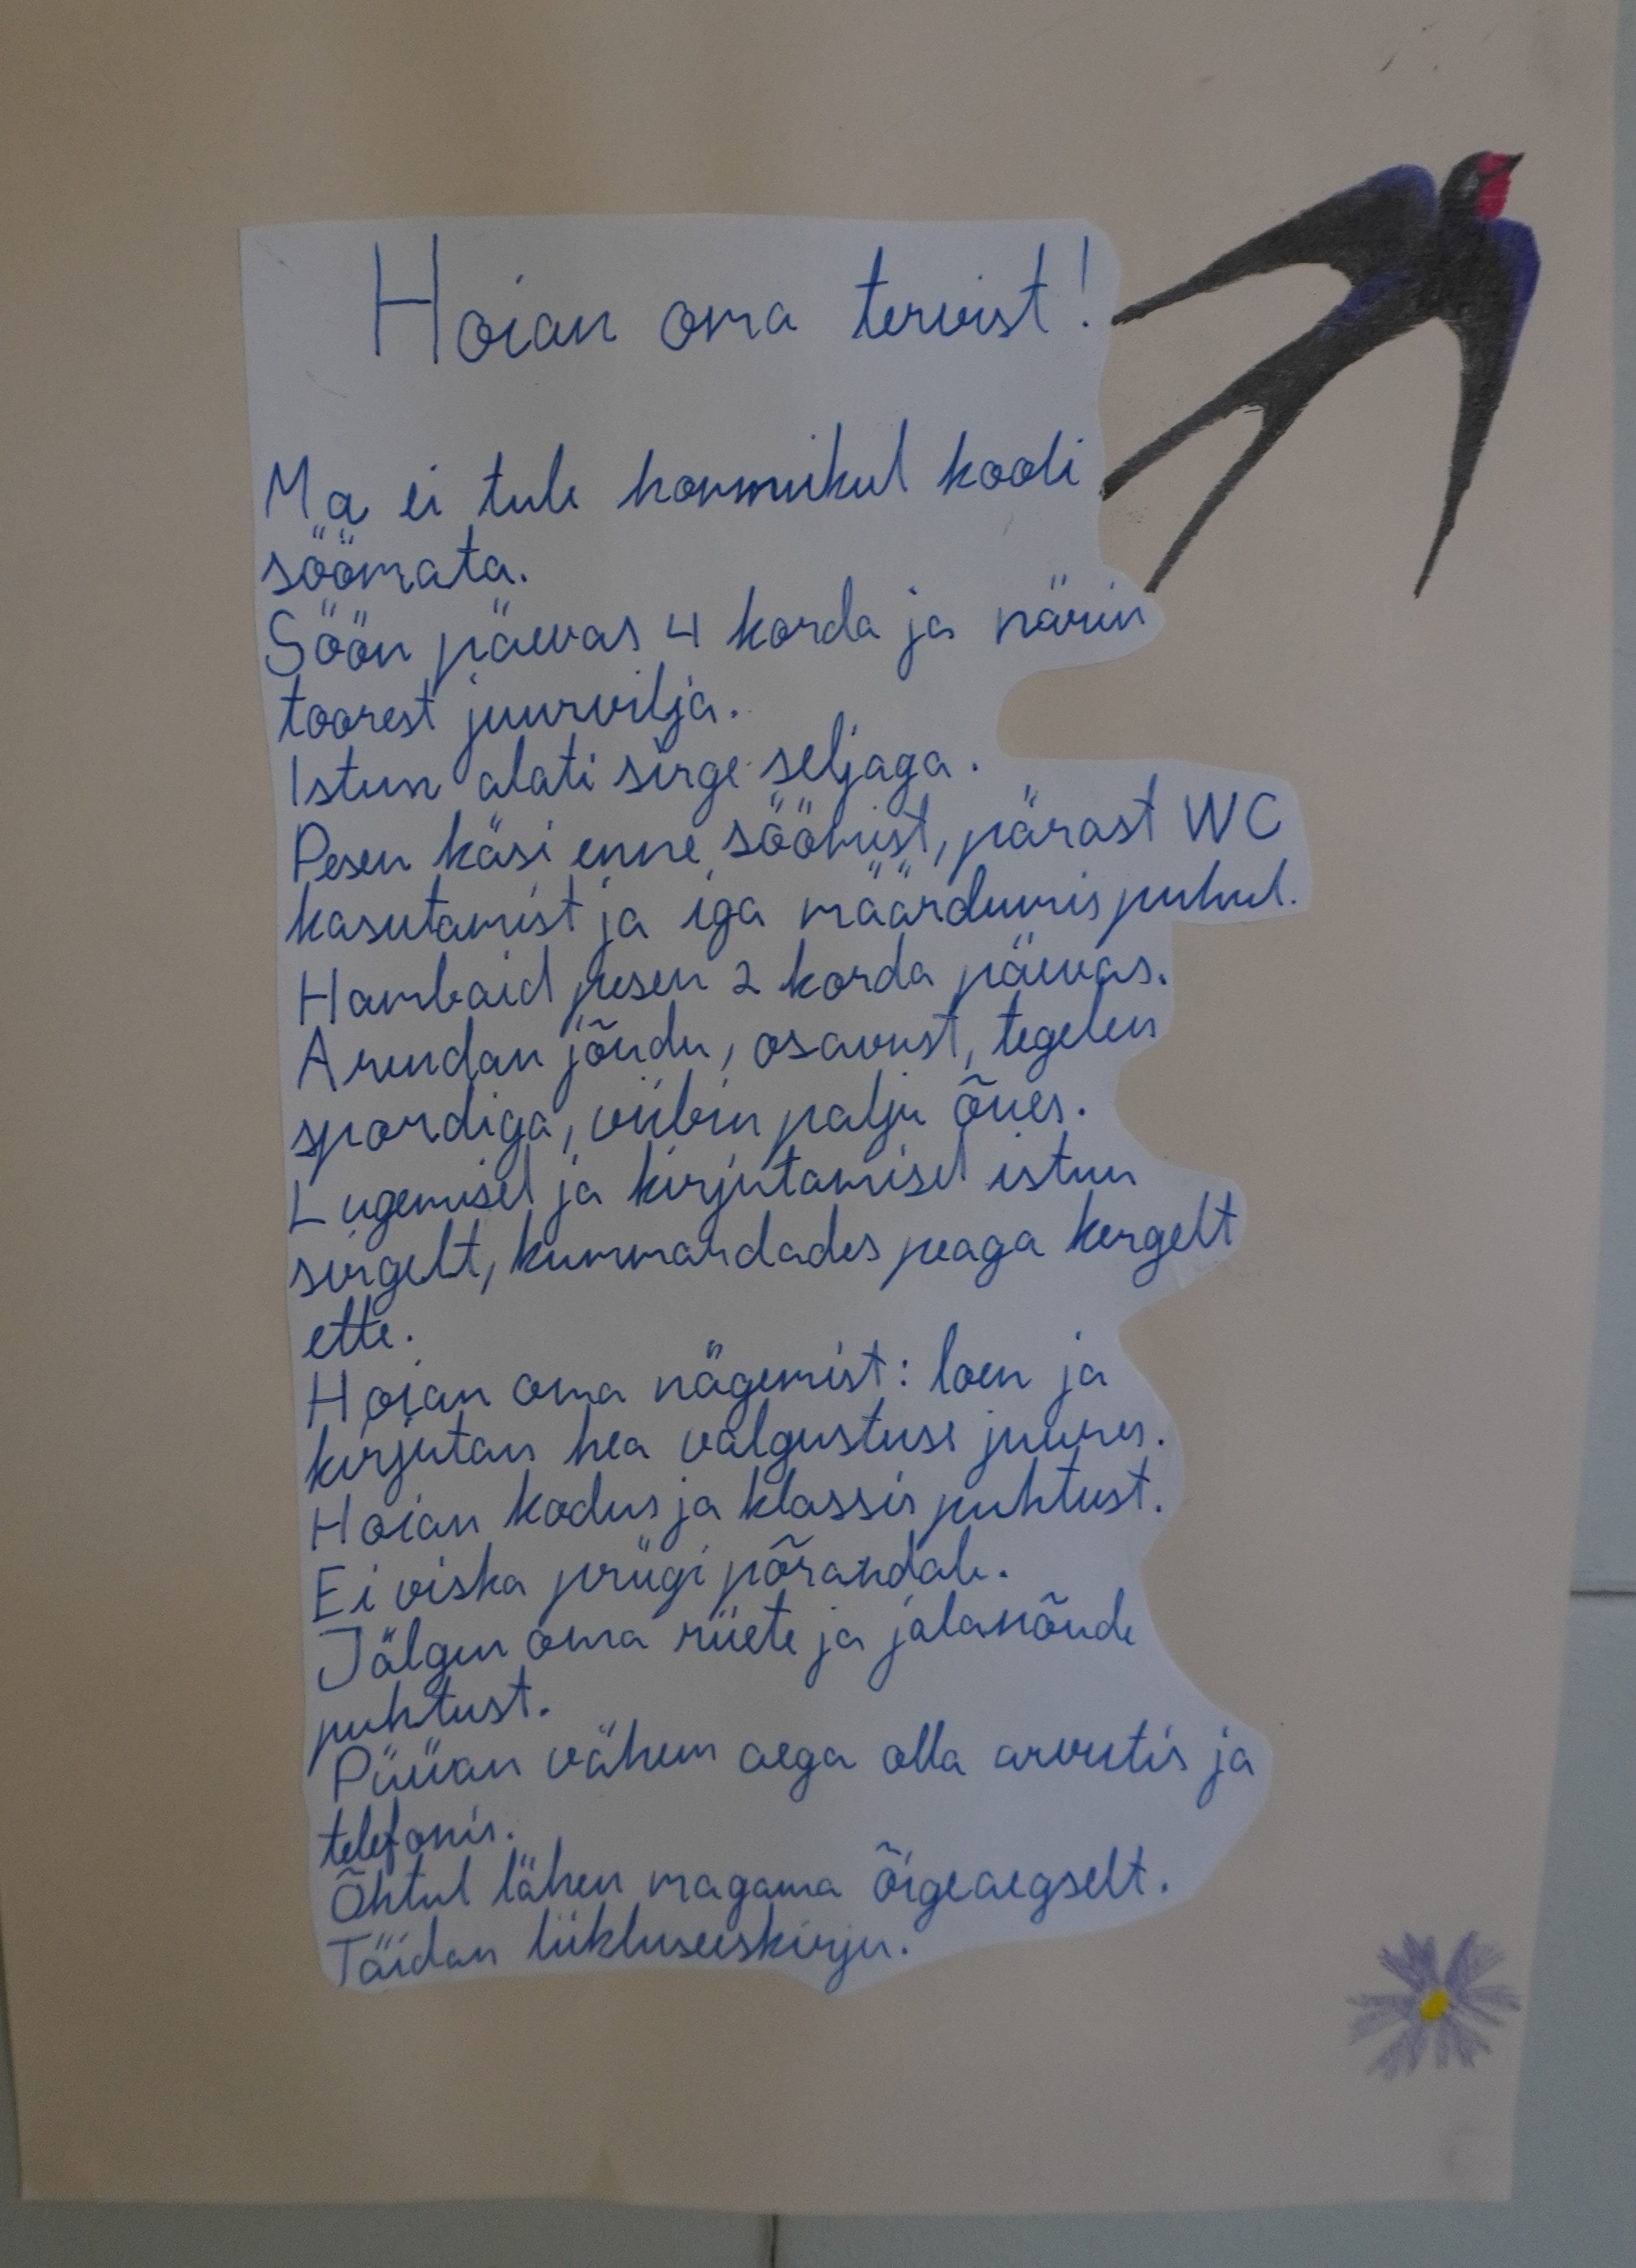 Hoian oma tervist!
Ma ei tule hommikul kooli
söömata.
Söön päevas 4 korda ja närin
toorest juurvilja.
Istun alati sirge seljaga.
Pesen käsi enne söömist, pärast WC
kasutamist ja iga määrdumis puhul.
Hambaid pesen 2 korda päevas.
Arendan jõudu, osavust, tegelen
spordiga, viibin palju õues.
Lugemisel ja kirjutamisel istun
sirgelt, kummardades peaga kergelt
ette.
Hoian oma nägemist: loen ja
kirjutan hea valgustuse juures.
Hoian kodus ja klassis puhtust.
Ei viska prügi põrandale.
Jälgin oma riiete ja jalanõude
puhtust.
Püüan vähem aega olla arvutis ja
telefonis.
Õhtul lähen magama õigeaegselt.
Täidan liikluseeskirju.